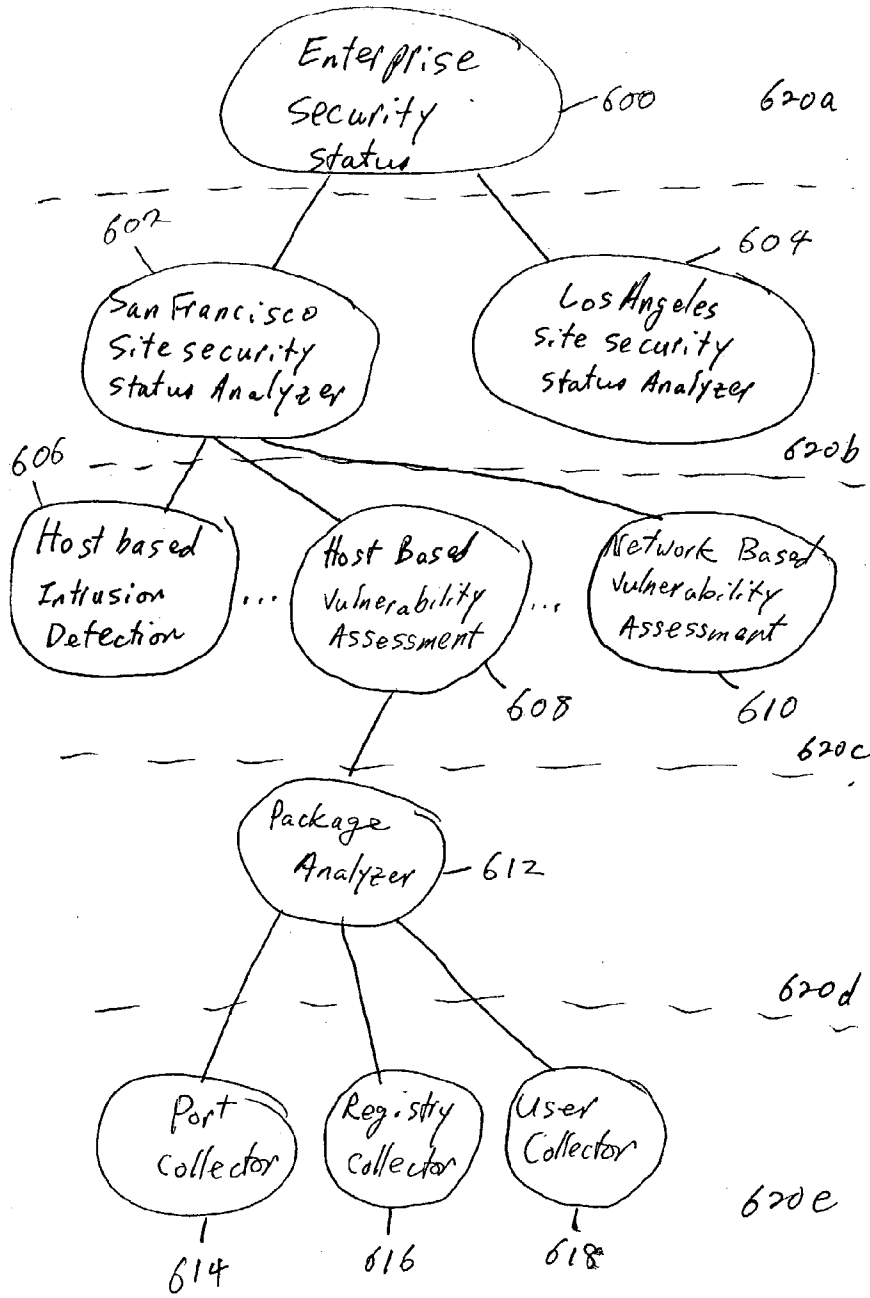 Enterprise
Security
Status
600
620a
602
604
San Francisco
Site security
Status Analyzer
Los Angeles
Site security
Status Analyzer
620b
606
Host based
Intrusion
Detection
...
Host Based
Vulnerability
Assessment
...
Network Based
Vulnerability
Assessment
608
610
620c
Package
Analyzer
612
620d
Port
Collector
Registry
Collector
User
Collector
620e
614
616
618